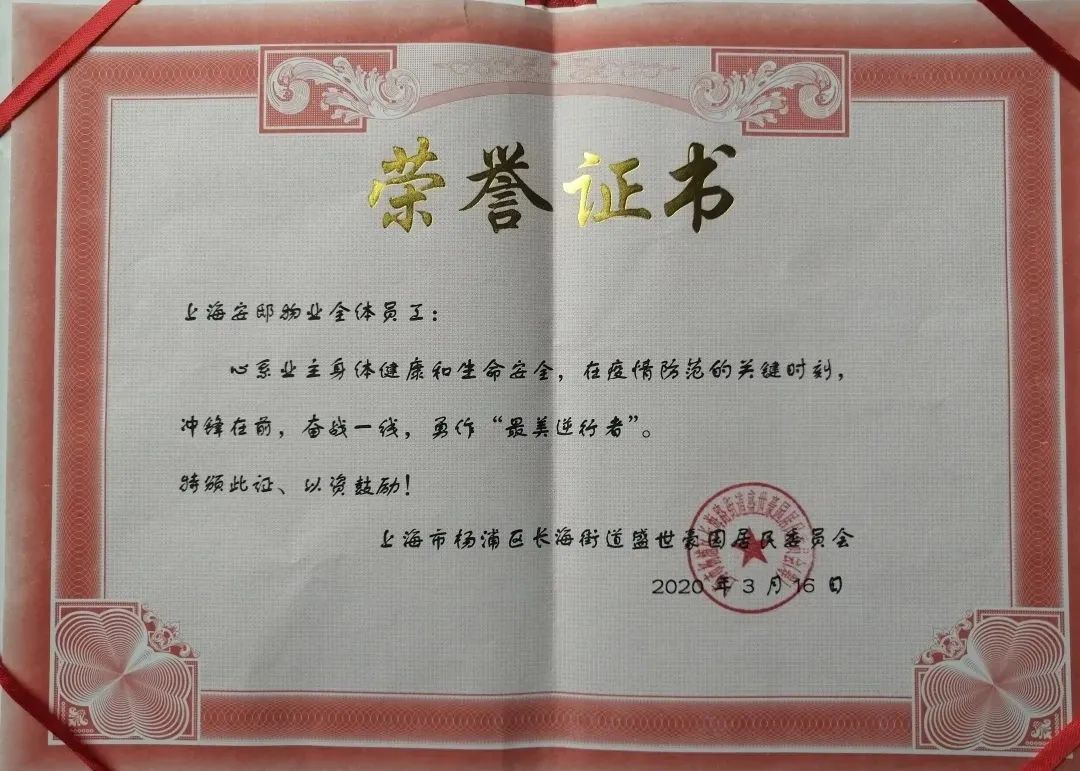 荣誉证书
上海安邸物业全体员工：
心系业主身体健康和生命安全，在疫情防范的关键时刻，
冲锋在前，奋战一线，勇作“最美逆行者”。
特颁此证、以资鼓励！
上海市杨浦区长海街道盛世豪园居民委员会
2020 年 3 月 16 日